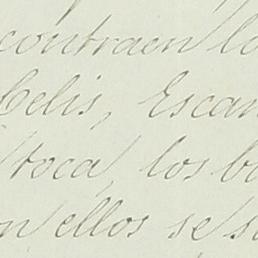 contraen lo
Celis, Escan
toca, los b
n ellos se s